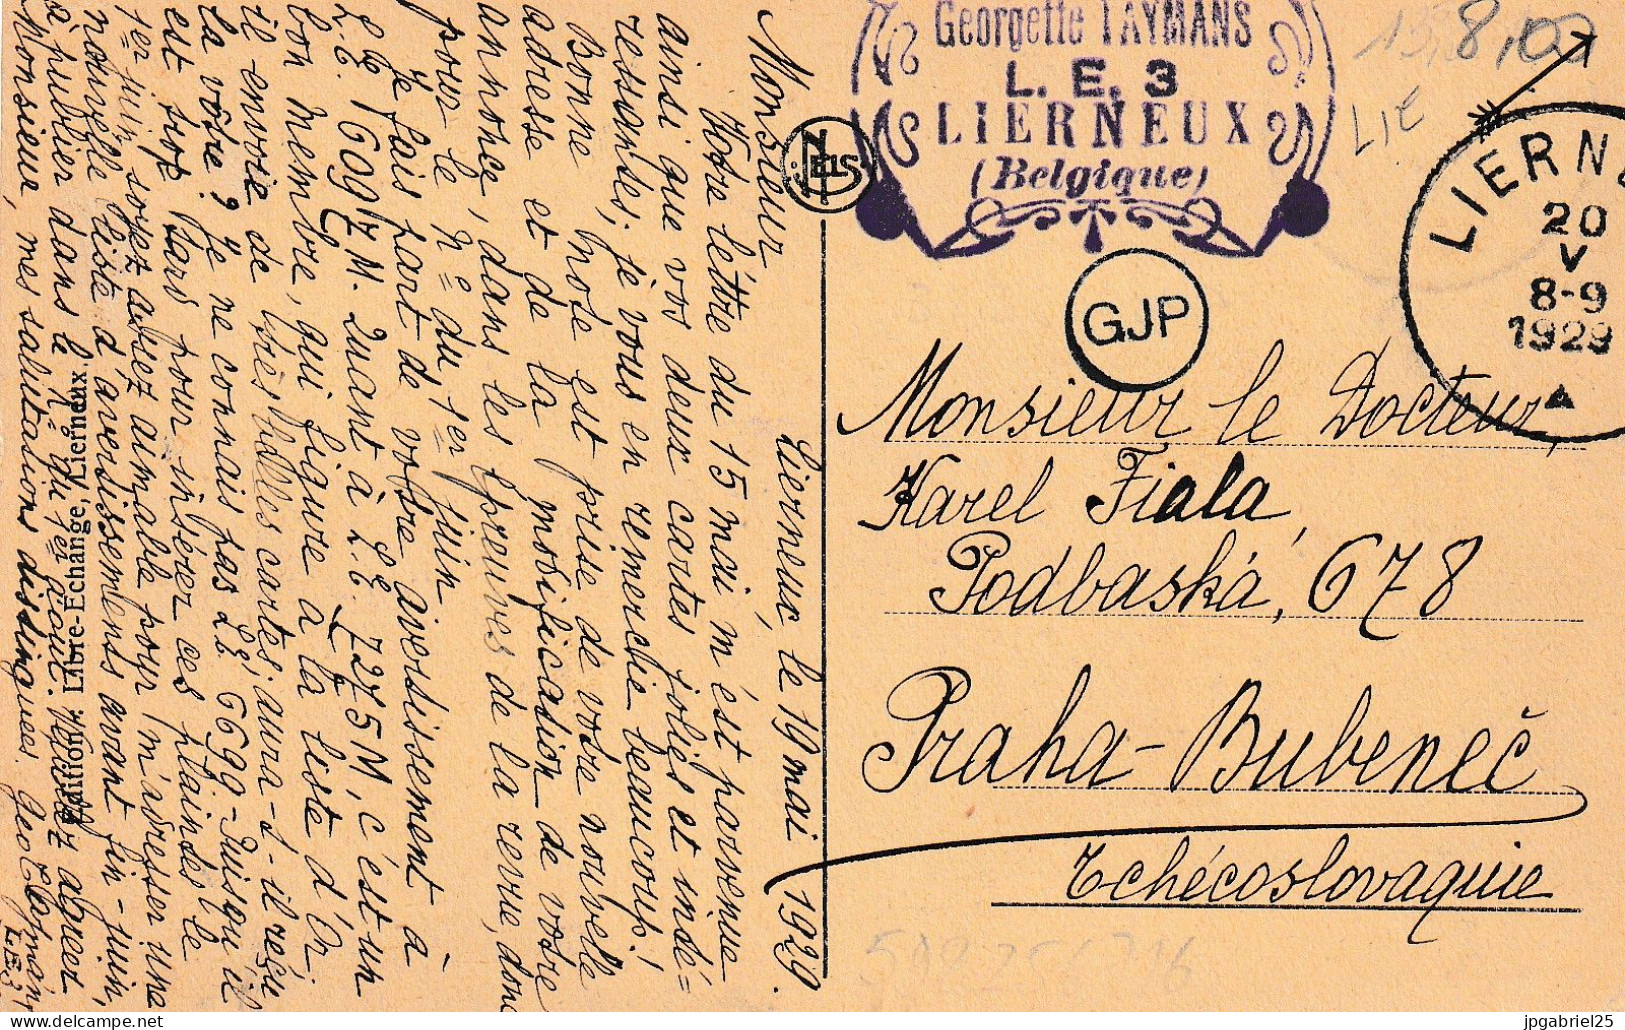 Lierneux, le 19 mai 1929.
Monsieur
Votre lettre du 15 mai m'est parvenue
ainsi que vos deux cartes jolies et indé=
ressantes; je vous en remercie beaucoup!
Bonne note est prise de votre nouvelle
adresse et de la modification de votre
annonce, dans les épreuves de la revue, donc
pour le nº du 1er juin.
Je fais part de votre avertissement à
L.E. 1609 M. Quant à L.E. 7275 M, c'est un
bon membre, qui figure à la liste d'Or
il envoie de très belles cartes; aura-t-il reçu
la vôtre? Je ne connais pas L.E. 6699-Puisqu'il
est trop tard pour insérer ces plaintes le
1er juin, soyez assez aimable pour m'adresser une
nouvelle liste d'avertissements avant fin-juin,
à publier dans le nº du 1er août. Veuillez agréer
Monsieur, mes salutations distinguées.
L.E.3
Edition: Libre-Echange, Lierneux
NELS
Georgette TAYMANS
L. E. 3
LIERNEUX
(Belgique)
GJP
8,00
LIE
LIERNE
20
V
8-9
1929
Monsieur le Docteur,
Karel Fiala,
Podbaská, 678
Praha-Bubeneč
Tchécoslovaquie
jpgabriel25